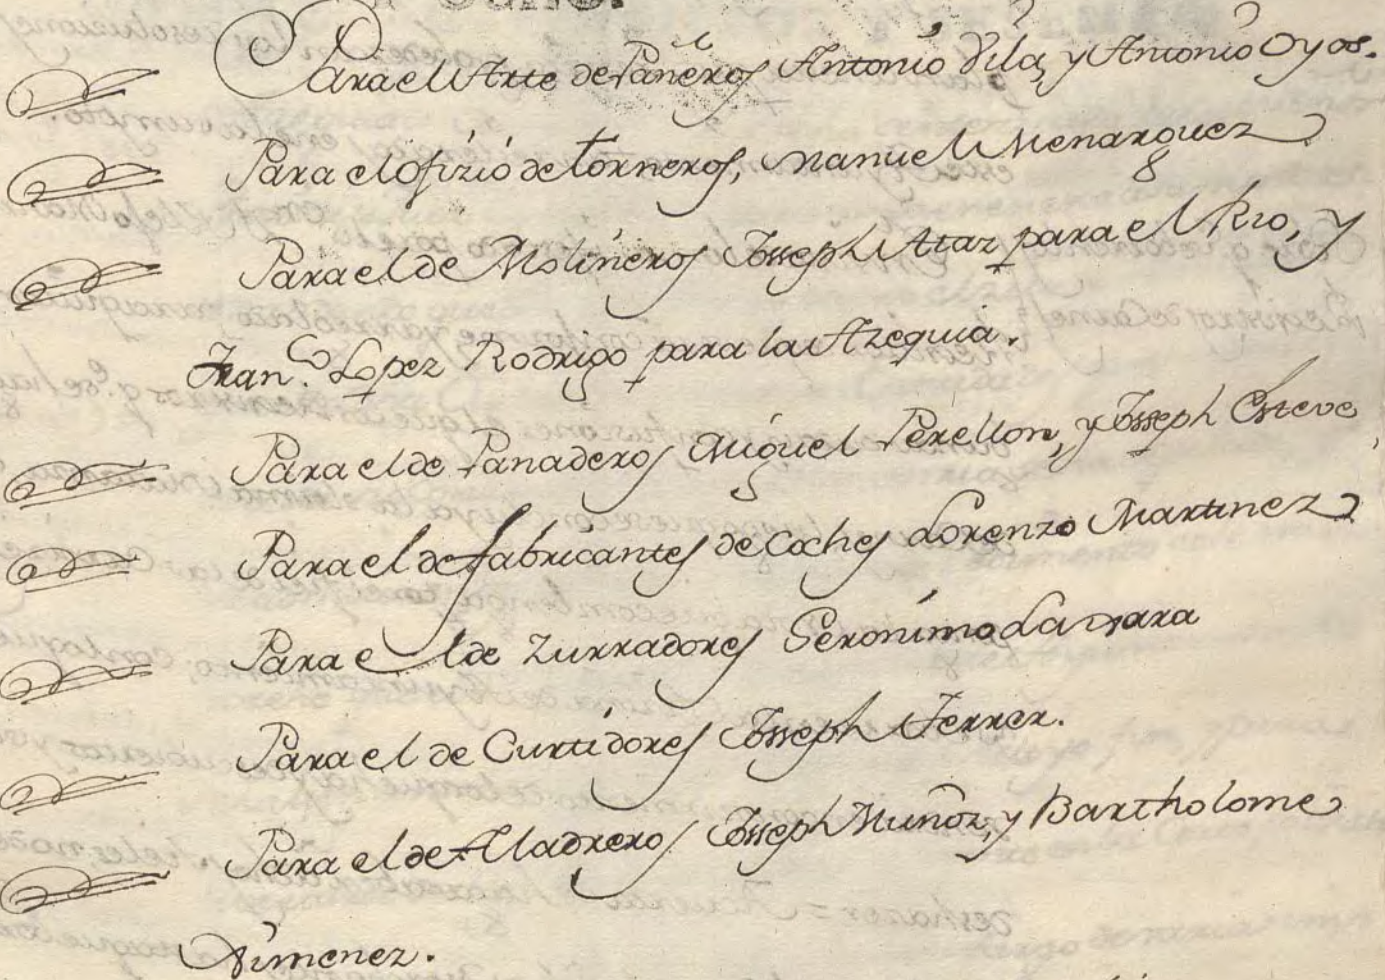 Para el Arte de Pañeros Antonio Vila, y Antonio Oyos.
Para el ofizio de torneros, Manuel Menarguez
Para el de Molineros Joseph Ataz para el Rio, y
Fran.co Lopez Rodrigo para la Azequia.
Para el de Panaderos Miguel Perellon, y Joseph Esteve
Para el de fabricantes de Coches Lorenzo Martinez
Para el de Zurradores Geronimo Lamara
Para el de Curtidores Joseph Ferrer.
Para el de Aladreros Joseph Muñoz, y Bartholome
Ximenez.